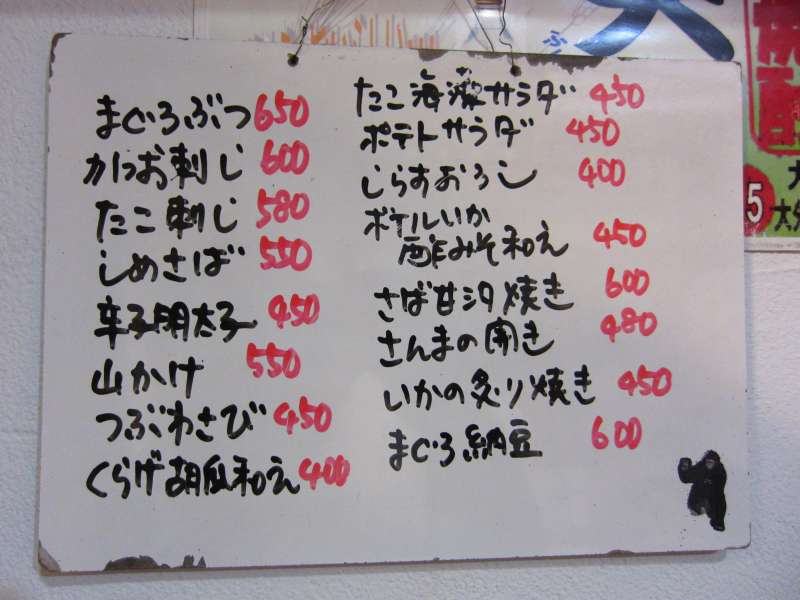 まぐろぶつ 650
かつお刺し 600
たこ刺し 580
しめさば 550
辛子明太子 450
山かけ 550
つぶわさび 450
くらげ胡瓜和え 400
たこ海藻サラダ 450
ポテトサラダ 450
しらすおろし 400
ボイルいか
酢みそ和え 450
さば甘汐焼き 600
さんまの開き 480
いかの炙り焼き 450
まぐろ納豆 600
5